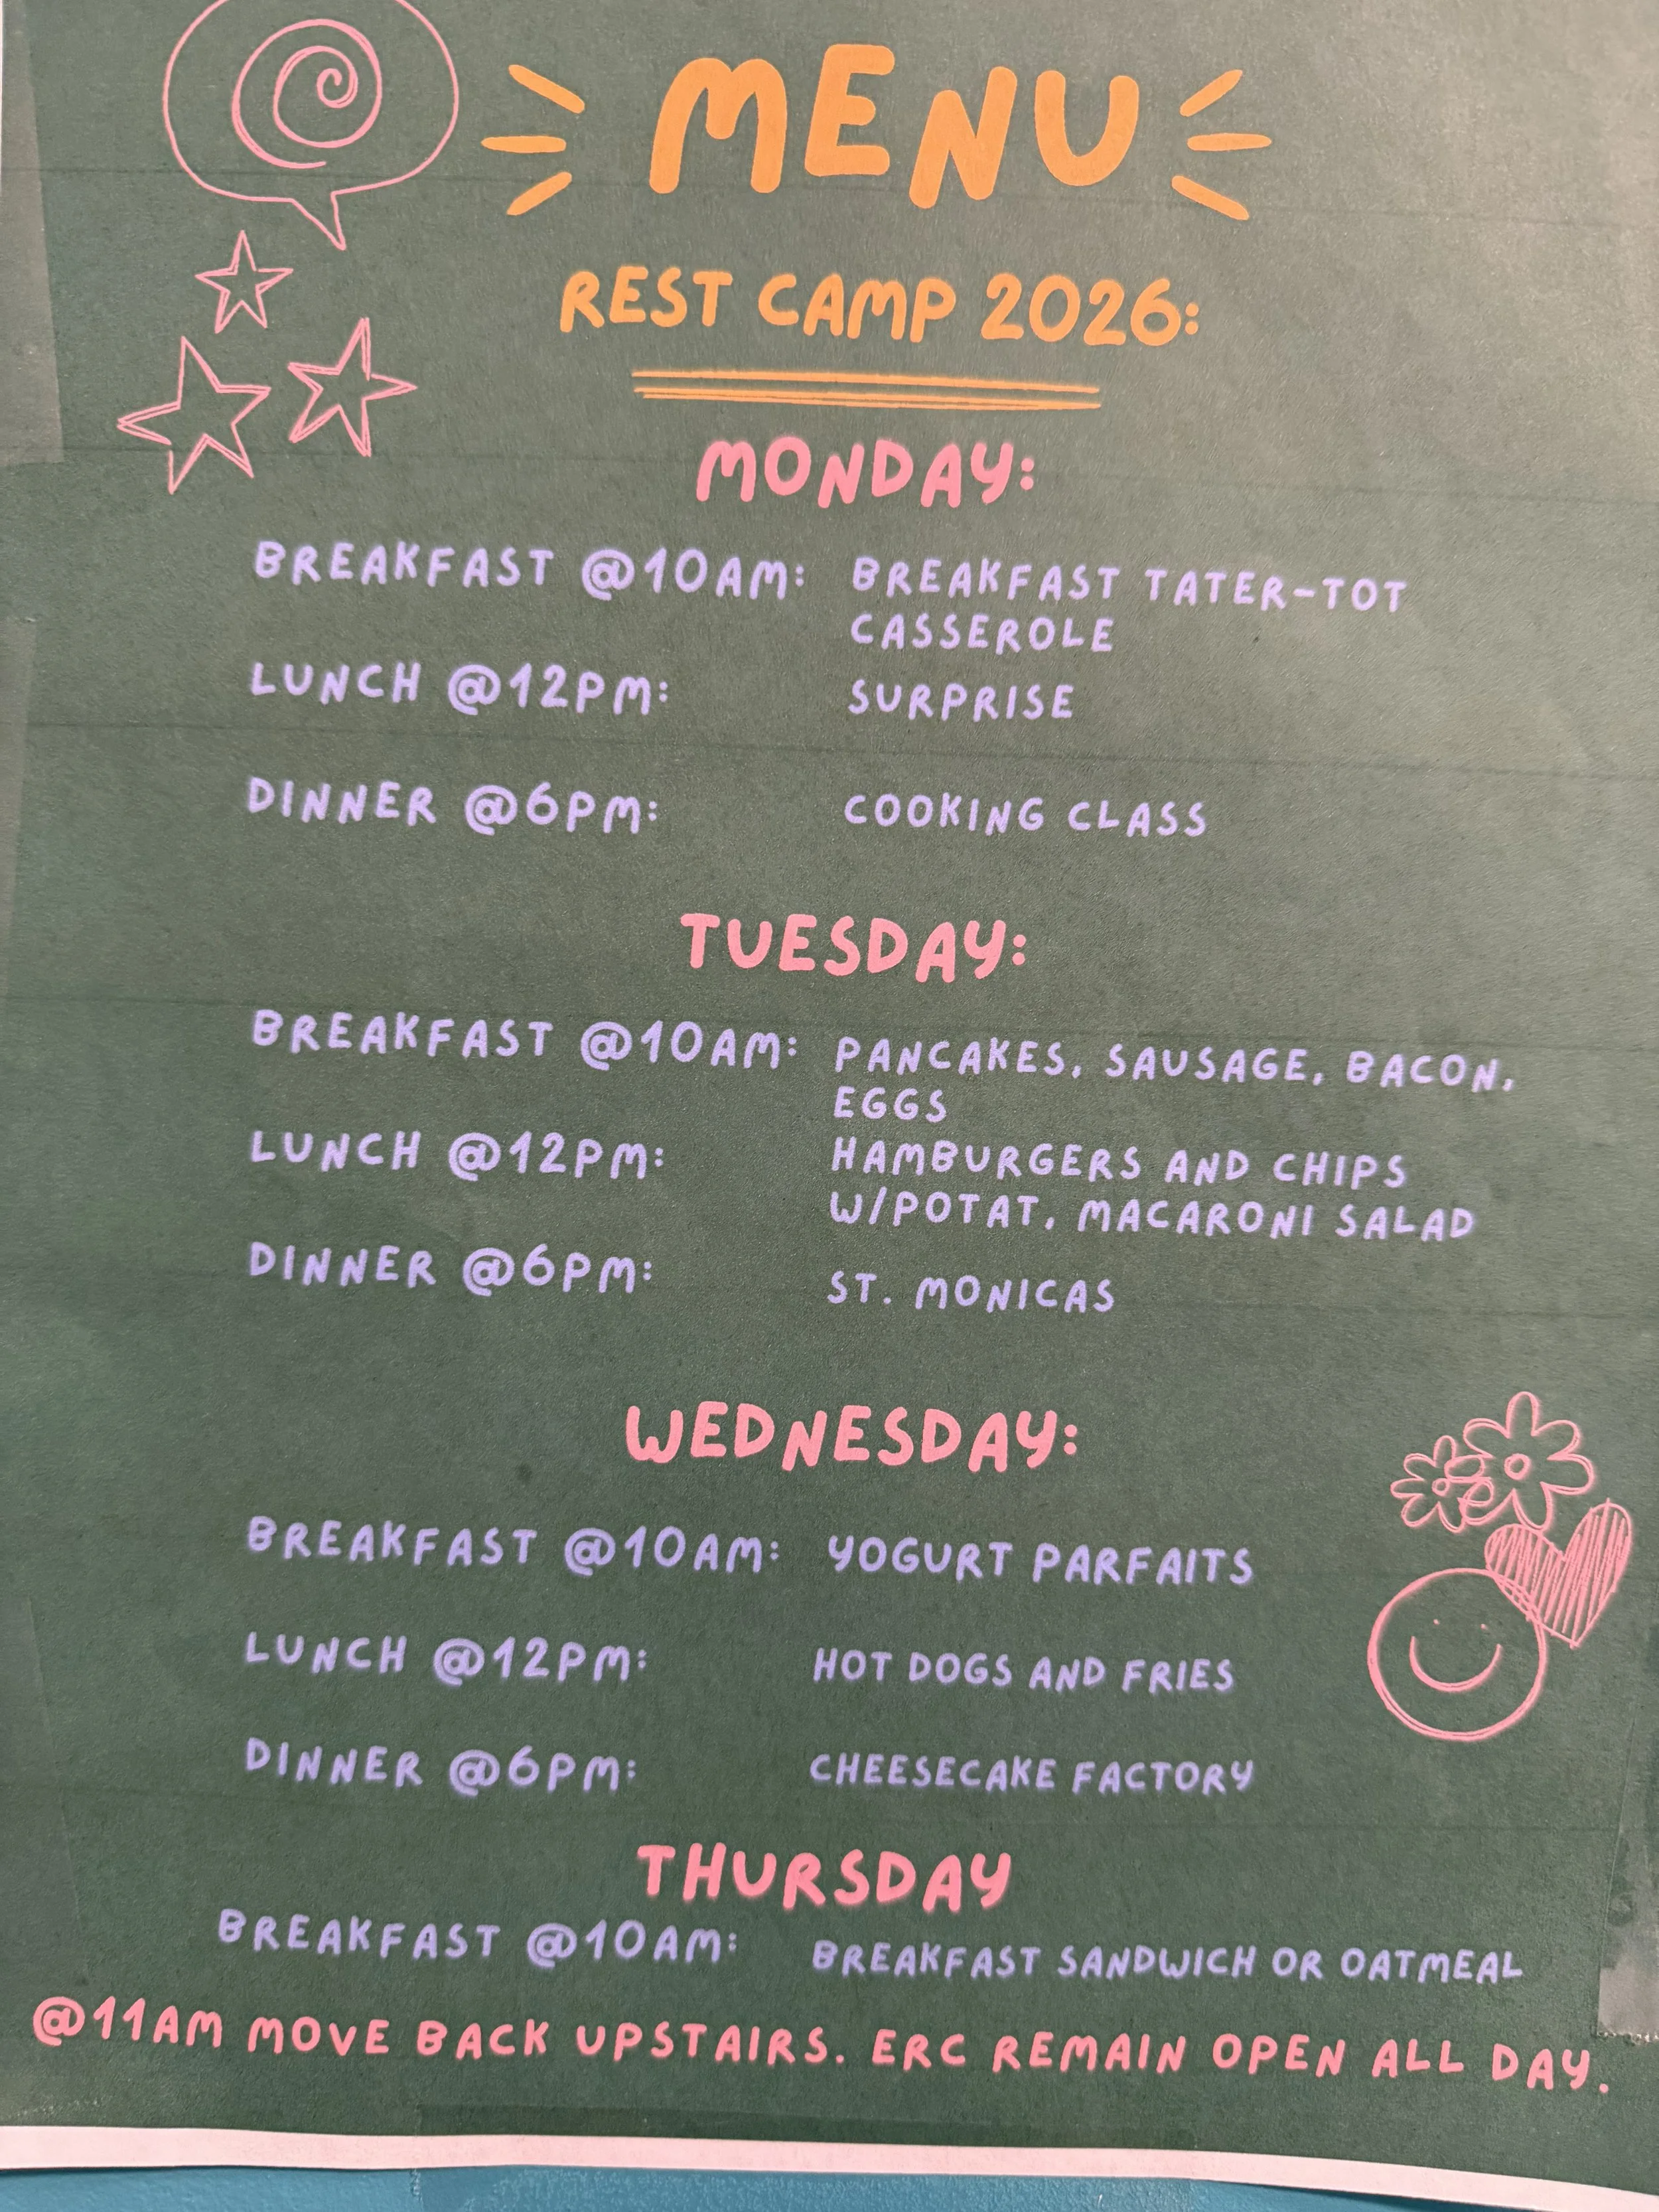 MENU
REST CAMP 2026:
MONDAY:
BREAKFAST @10AM: BREAKFAST TATER-TOT
CASSEROLE
LUNCH @12PM: SURPRISE
DINNER @6PM: COOKING CLASS
TUESDAY:
BREAKFAST @10AM: PANCAKES, SAUSAGE, BACON,
EGGS
LUNCH @12PM: HAMBURGERS AND CHIPS
W/POTAT, MACARONI SALAD
DINNER @6PM: ST. MONICAS
WEDNESDAY:
BREAKFAST @10AM: YOGURT PARFAITS
LUNCH @12PM: HOT DOGS AND FRIES
DINNER @6PM: CHEESECAKE FACTORY
THURSDAY
BREAKFAST @10AM: BREAKFAST SANDWICH OR OATMEAL
@11AM MOVE BACK UPSTAIRS. ERC REMAIN OPEN ALL DAY.